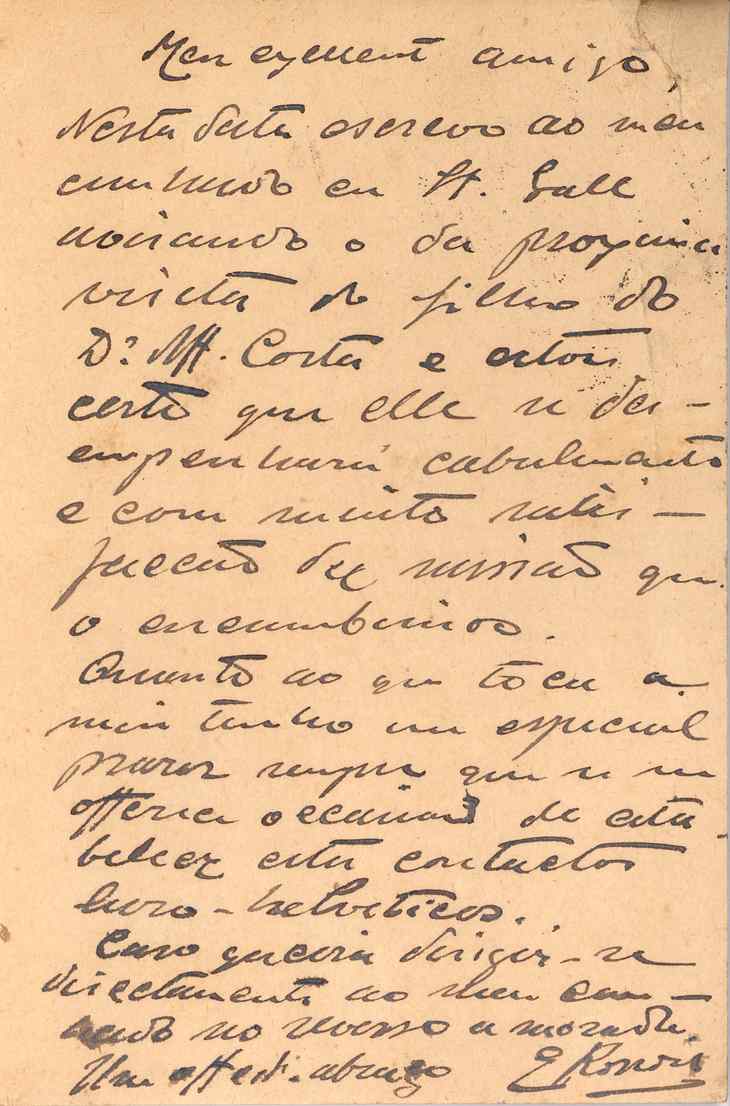 Meu excellente amigo,
Nesta data escrevo ao meu
cunhado em St. Gall
avisando o da proxima
visita do filho do
Dr. Costa e estou
certo que elle se des-
empenhará cabalmente
e com muito satis-
facção da missão que
o encumbimos.
Quanto ao que toca a
mim tenho um especial
prazer sempre que se me
offerece occasião de esta-
belecer estes contactos
luso-helveticos.
Caso queira dirigir-se
directamente ao meu cun-
hado no verso a morada.
Um abraço E